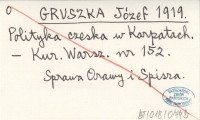 o GRUSZKA Józef 1919.
Polityka czeska w Karpatach.
— Kur. Warsz. nr 152.
Sprawa Orawy i Spisza.